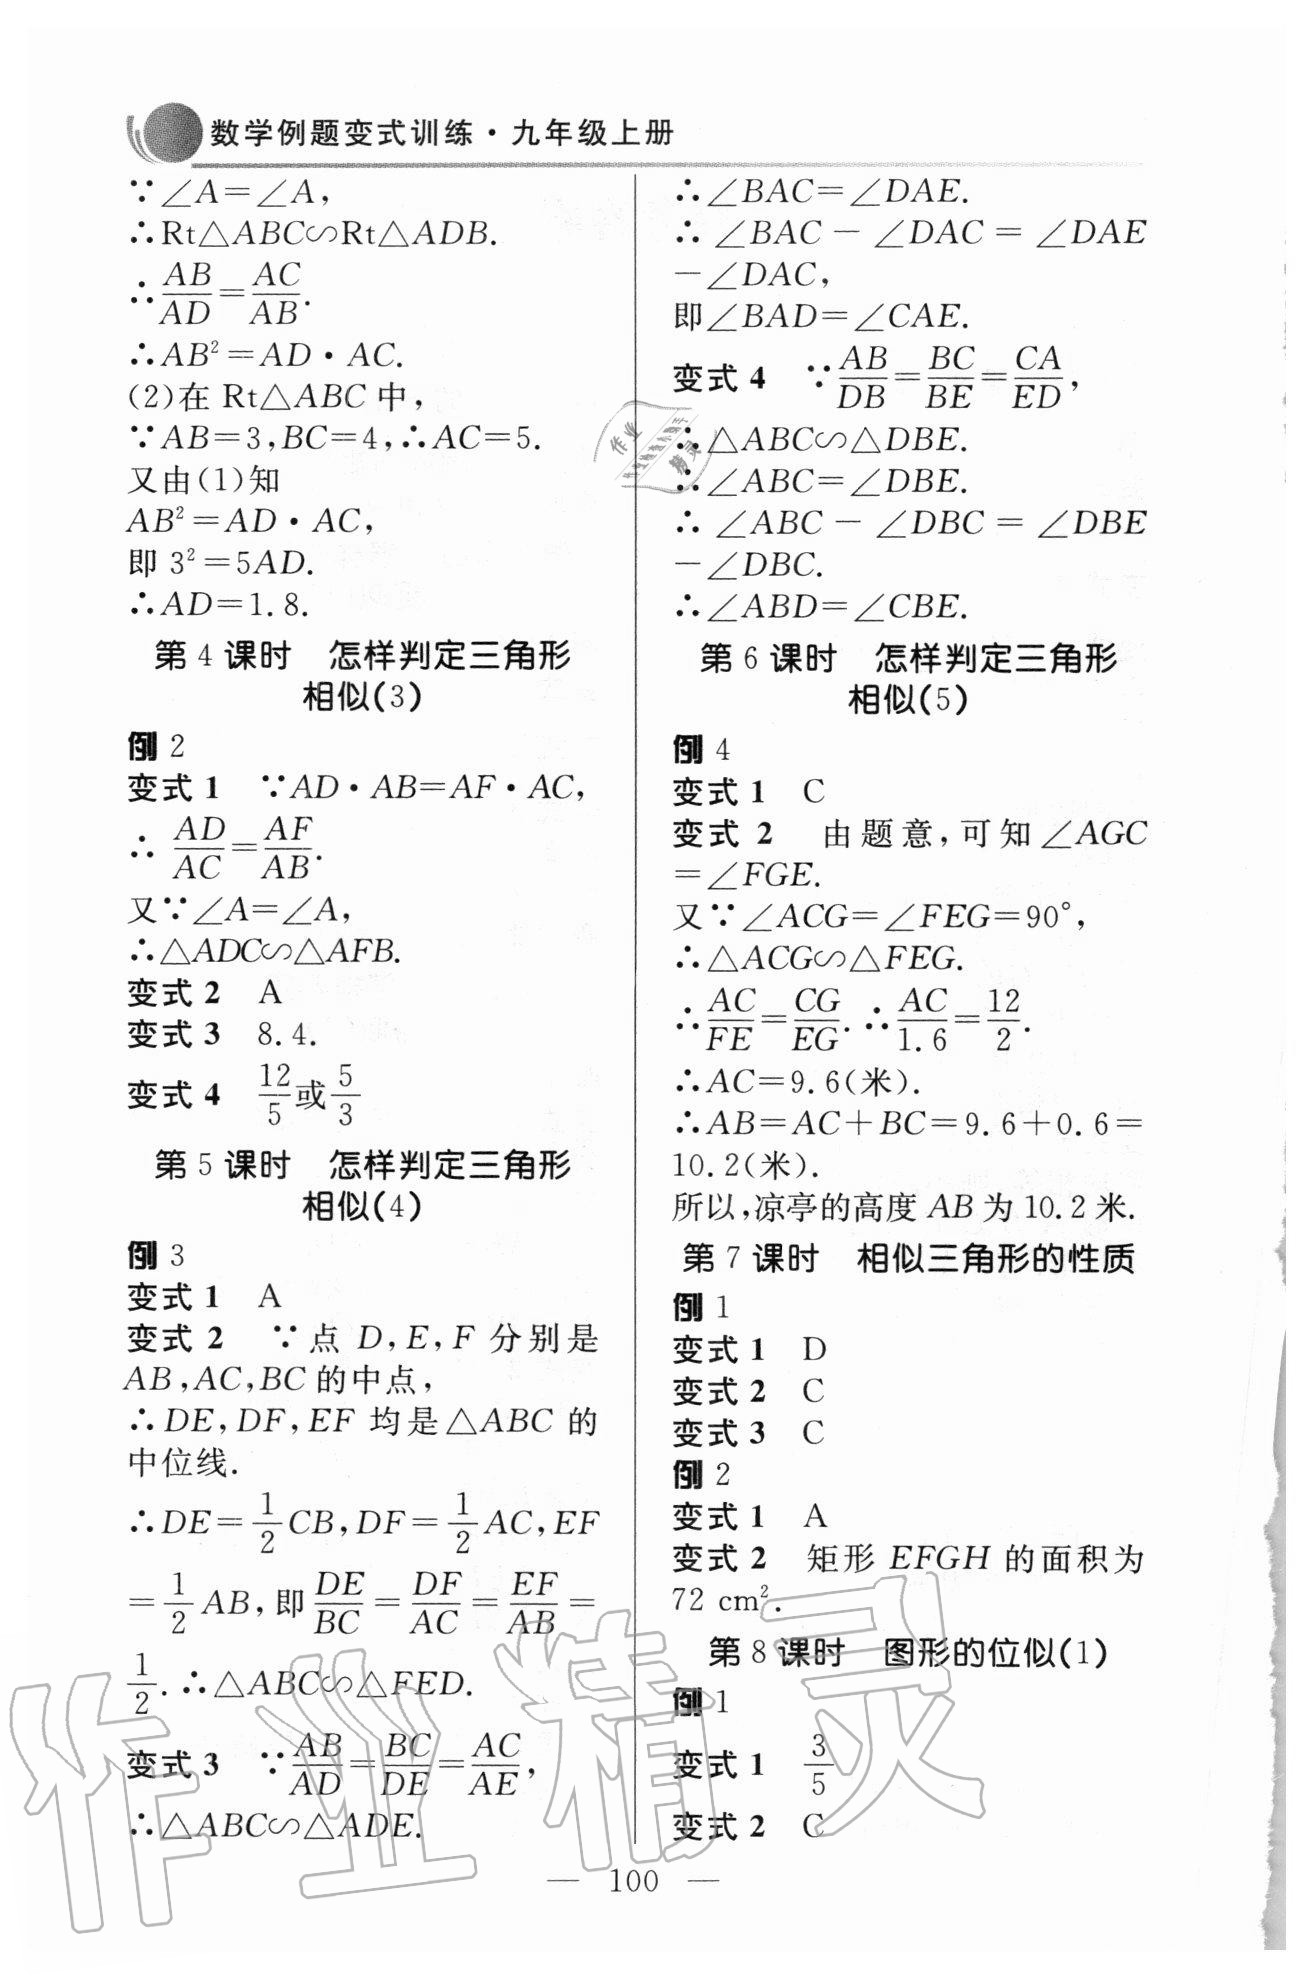 数学例题变式训练·九年级上册
∵∠A=∠A,
∴Rt△ABC∽Rt△ADB.
∴AB/AD=AC/AB.
∴AB²=AD·AC.
(2)在 Rt△ABC 中,
∵AB=3,BC=4,∴AC=5.
又由(1)知
AB²=AD·AC,
即 3²=5AD.
∴AD=1.8.
第 4 课时 怎样判定三角形
相似(3)
例 2
变式 1 ∵AD·AB=AF·AC,
∴ AD/AC=AF/AB.
又∵∠A=∠A,
∴△ADC∽△AFB.
变式 2 A
变式 3 8.4.
变式 4 12/5或5/3
第 5 课时 怎样判定三角形
相似(4)
例 3
变式 1 A
变式 2 ∵点 D,E,F 分别是
AB,AC,BC 的中点,
∴DE,DF,EF 均是△ABC 的
中位线.
∴DE=1/2CB,DF=1/2AC,EF
=1/2AB,即DE/BC=DF/AC=EF/AB=
1/2.∴△ABC∽△FED.
变式 3 ∵AB/AD=BC/DE=AC/AE,
∴△ABC∽△ADE.
∴∠BAC=∠DAE.
∴∠BAC-∠DAC=∠DAE
-∠DAC,
即∠BAD=∠CAE.
变式 4 ∵AB/DB=BC/BE=CA/ED,
∴△ABC∽△DBE.
∴∠ABC=∠DBE.
∴∠ABC-∠DBC=∠DBE
-∠DBC.
∴∠ABD=∠CBE.
第 6 课时 怎样判定三角形
相似(5)
例 4
变式 1 C
变式 2 由题意,可知∠AGC
=∠FGE.
又∵∠ACG=∠FEG=90°,
∴△ACG∽△FEG.
∴AC/FE=CG/EG.∴AC/1.6=12/2.
∴AC=9.6(米).
∴AB=AC+BC=9.6+0.6=
10.2(米).
所以,凉亭的高度 AB 为 10.2 米.
第 7 课时 相似三角形的性质
例 1
变式 1 D
变式 2 C
变式 3 C
例 2
变式 1 A
变式 2 矩形 EFGH 的面积为
72 cm².
第 8 课时 图形的位似(1)
例 1
变式 1 3/5
变式 2 C
— 100 —
作业精灵
作业
精灵